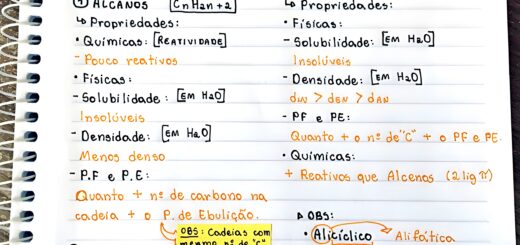 ① ALCANOS [CnH2n+2]
↳ Propriedades:
• Químicas: [REATIVIDADE]
- Pouco reativos
• Físicas:
- Solubilidade: [EM H2O]
Insolúveis
- Densidade: [EM H2O]
Menos denso
- P.F e P.E:
Quanto + nº de carbono na
cadeia + o P. de Ebulição.
OBS: Cadeias com
mesmo nº de "C"
↳ Propriedades:
• Físicas:
- Solubilidade: [EM H2O]
Insolúveis
- Densidade: [EM H2O]
- PF e PE:
Quanto + o nº de "C" + o PF e PE.
• Químicas:
+ Reativos que Alcenos (2 lig π)
▲ OBS:
• Alicíclico → Alifática